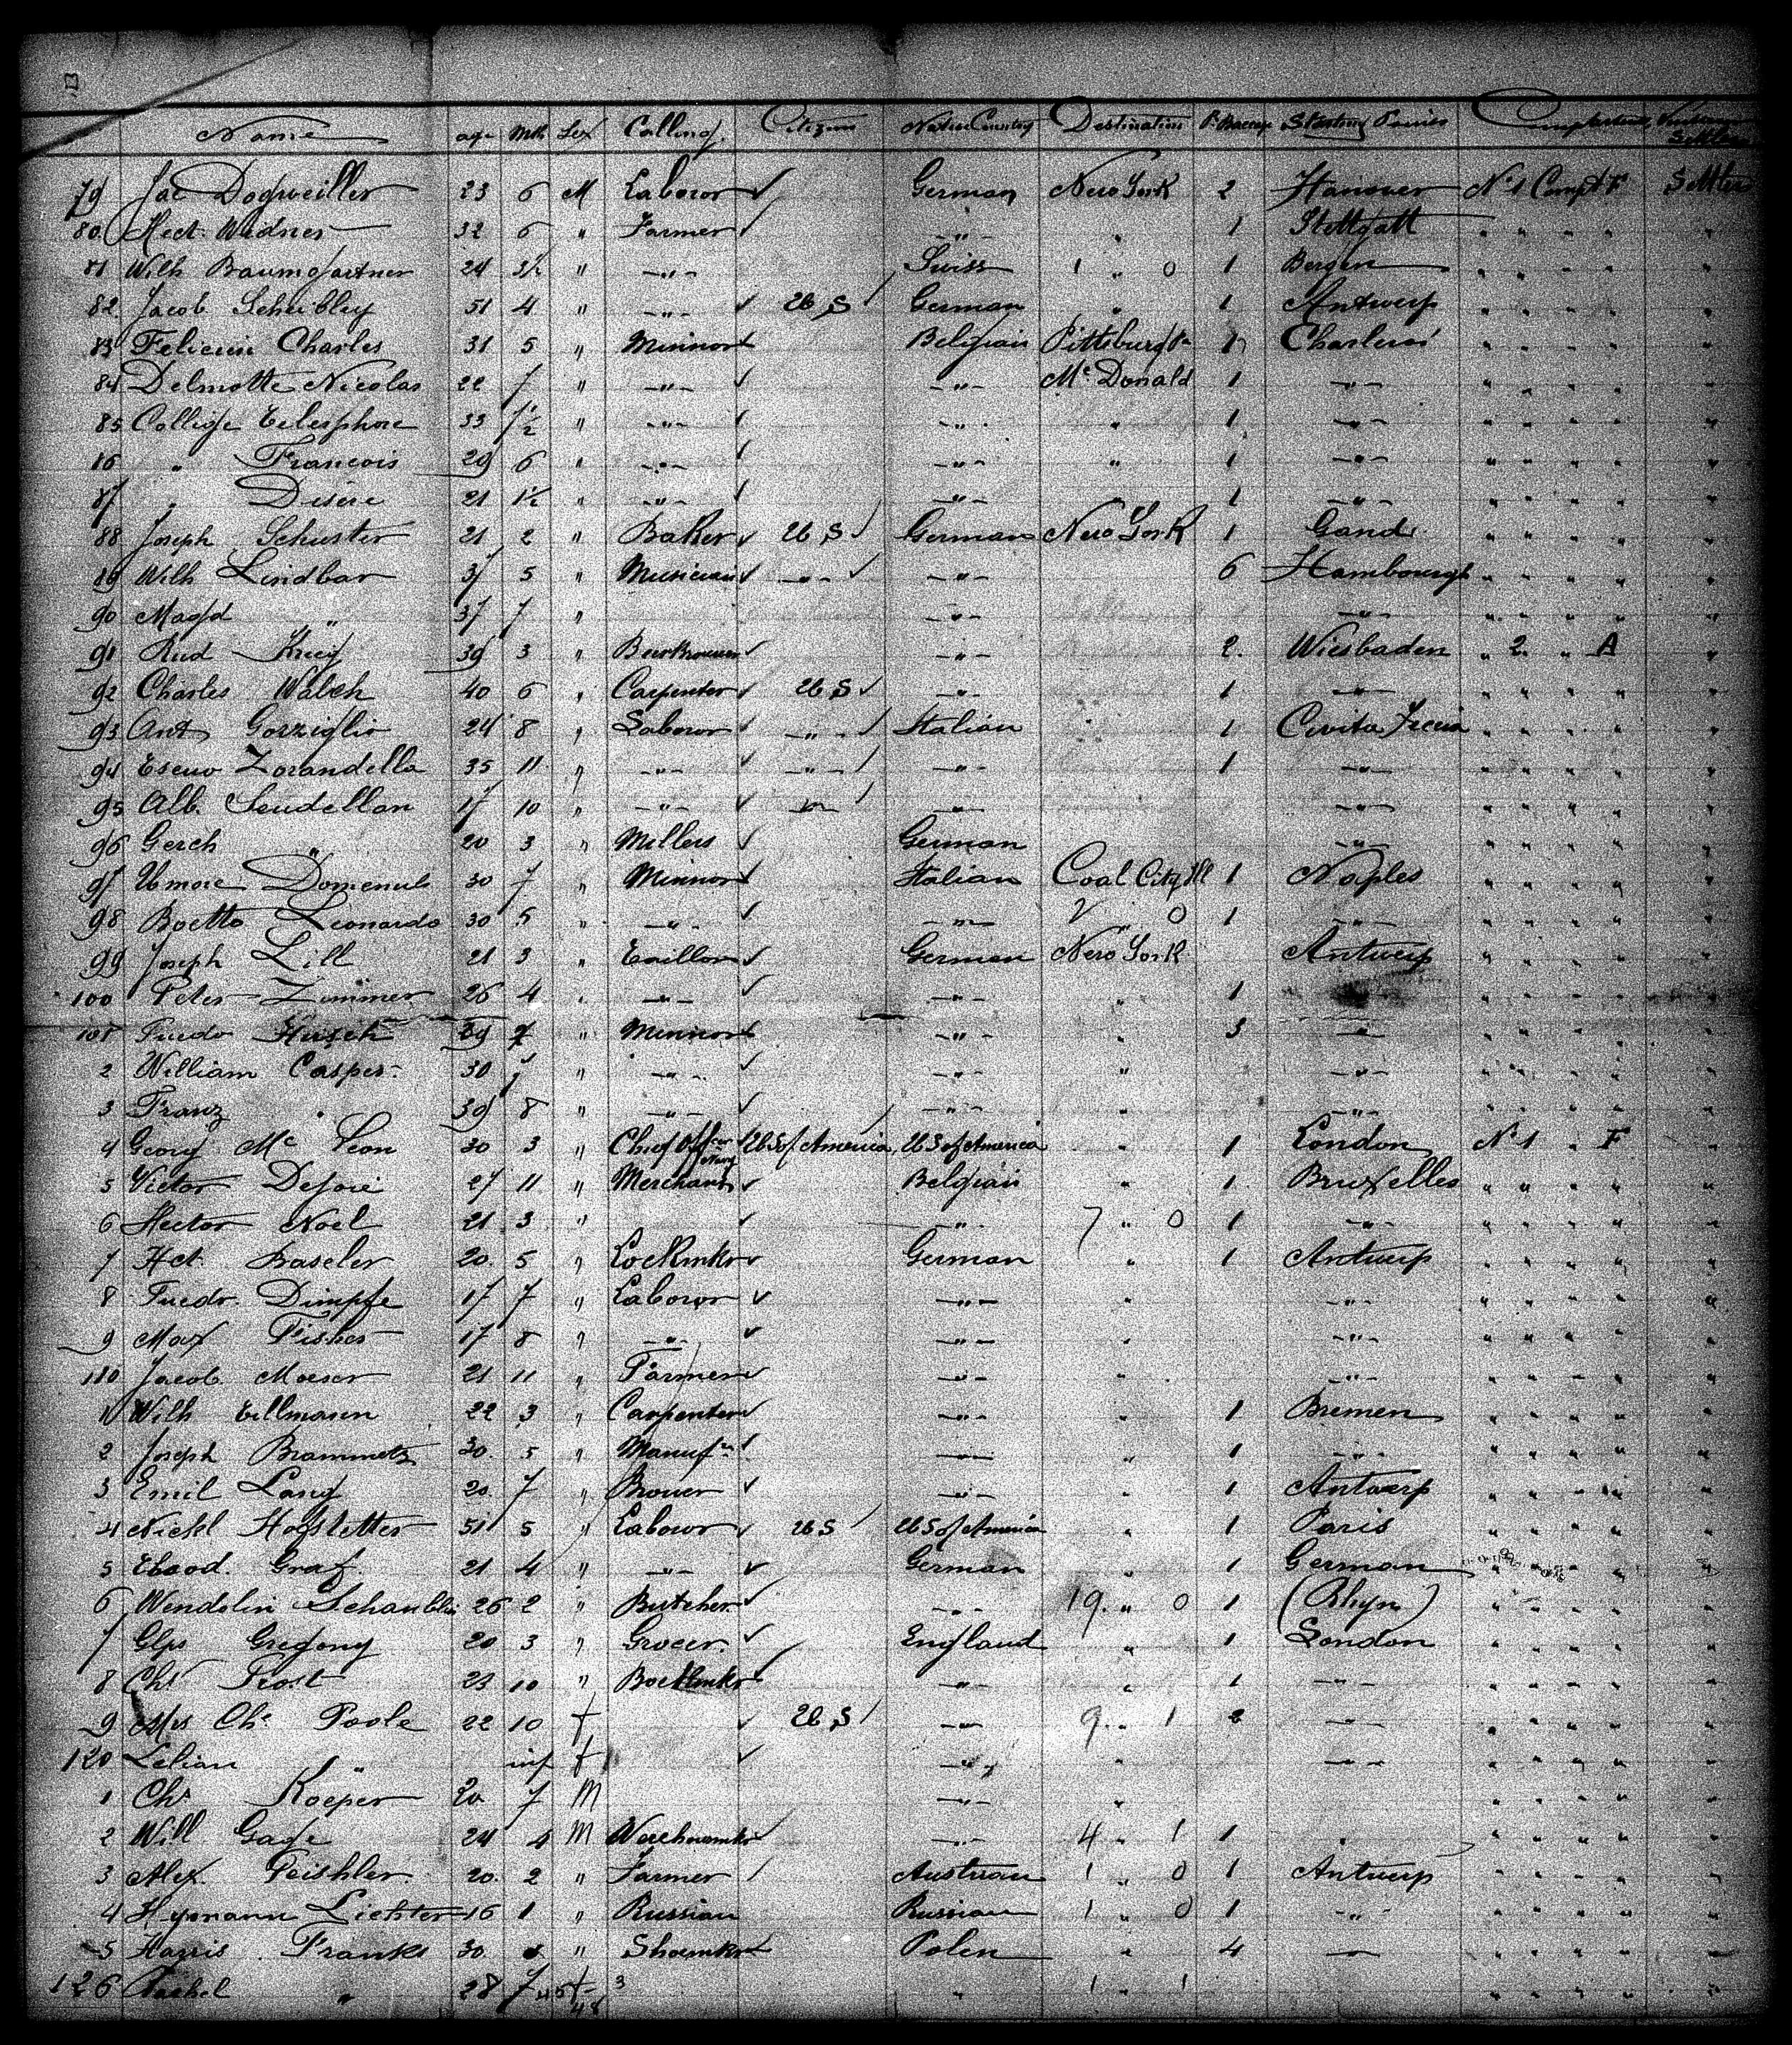 Name age Mth Sex Calling Citizens Native Country Destination Starting Points
79 Jac Dogweiller 23 6 M Laboror ✓ German New York 2 Hanover No 1 Compt F Settler
80 Hect. Widner 32 6 " Farmer ✓ -"- " 1 Stettgatt " " " " "
81 Wilh Baumgartner 24 3½ " -"- Swiss 1 " 0 1 Bergen " " " " "
82. Jacob Scheibley 51 4 " -"- ✓ U S ✓ German " 1 Antwerp " " " " "
83 Felicien Charles 31 5 " Minnor ✓ Belgian Pittsburg Pa 1 Charleroi " " " " "
84 Delmotte Nicolas 22 7 " -"- ✓ -"- Mc Donald 1 -"- " " " " "
85 Collige Telesphore 33 7½ " -"- ✓ -"- " 1 -"- " " " " "
86 " Francois 29 6 " -"- ✓ -"- " 1 -"- " " " " "
87 " Desire 21 1½ " -"- ✓ -"- " 1 -"- " " " " "
88 Joseph Schuster 21 2 " Baker ✓ U S ✓ German New York 1 Gand " " " " "
89 Wilh Lindbar 37 5 " Musician ✓ -"- ✓ -"- 6 Hambourgh " " " " "
90 Magd " 37 7 " -"- -"- " " " " "
91 Rud Krieg 39 3 " ✓ -"- 2. Wiesbaden " 2 " A "
92 Charles Walch 40 6 " Carpenter ✓ U S ✓ -"- 1 -"- " " " " "
93 Ant Gorziglio 24 8 " Laboror ✓ -"- ✓ Italian 1 Civita " " " " "
94 Zorandella 35 11 " -"- ✓ -"- ✓ -"- 1 -"- " " " " "
95 Alb. Seudellan 17 10 " -"- ✓ -"- ✓ -"- -"- " " " " "
96 Gerch " 20 3 " Millers ✓ German -"- " " " " "
97 30 7 " Minnor ✓ Italian Coal City Ill 1 Naples " " " " "
98 Boetto Leonardo 30 5 " -"- ✓ -"- 2 " 0 1 -"- " " " " "
99 Joseph Lill 21 3 " Taillor ✓ German New York Antwerp " " " " "
100 Peter Zimmer 26 4 " -"- ✓ -"- " 1 -"- " " " " "
101 Hirsch 29 7 " Minnor ✓ -"- " 3 -"- " " " " "
2 William Casper 30 7 " -"- ✓ -"- " -"- " " " " "
3 Franz " 39 8 " -"- ✓ -"- " -"- " " " " "
4 Georg Mc Leon 30 3 " Chief Officer ✓ U S of America U S of America " 1 London No 1 " F "
5 Victor Dejoie 27 11 " Merchant ✓ Belgian " 1 Bruxelles " " " " "
6 Hector Noel 21 3 " ✓ -"- 7 " 0 1 -"- " " " " "
7 Hct. Baseler 20. 5 " Lockmkr ✓ German " 1 Antwerp " " " " "
8 Friedr. Dimpfe 17 7 " Laboror ✓ -"- " -"- " " " " "
9 Max Fisher 17 8 " -"- ✓ -"- " -"- " " " " "
110 Jacob Moeser 21 11 " Farmer ✓ -"- " -"- " " " " "
1 Wilh Tillmann 22 3 " Carpenter ✓ -"- " 1 Bremen " " " " "
2 Joseph Brammetz 30. 5 " Manufr ✓ -"- " 1 -"- " " " " "
3 Emil Lang 20. 7 " Brower ✓ -"- " 1 Antwerp " " " " "
4 Nickl Hofstetter 51 5 " Laboror ✓ U S ✓ U S of America " 1 Paris " " " " "
5 Graf. 21 4 " -"- ✓ German " 1 German " " " " "
6 Wendelin Schaublin 26 2 " Butcher ✓ -"- 19. " 0 1 (Rhyn) " " " " "
7 Gregory 20 3 " Grocer ✓ England " 1 London " " " " "
8 Chs Prost 23 10 " Bootmkr ✓ -"- " 1 -"- " " " " "
9 Mrs Chs Poole 22 10 f ✓ U S ✓ -"- 9. " 1 2 -"- " " " " "
120 Lelian " inf f ✓ -"- " -"- " " " " "
1 Chs Koeper 20 7 M -"- " " " " " "
2 Will Gage 24 4 M ✓ -"- 4 " 1 1 " " " " " "
3 Alex. Teishler 20. 2 " Farmer ✓ Austrian 1 " 0 1 Antwerp " " " " "
4 Hymann Lichter 16 1 " Russian Russian 1 " 0 1 -"- " " " " "
5 Harris Franks 30 " Shoemkr ✓ Polen " 4 — " " " " "
126 Rachel " 28 7 f 3 " 1 " 1 " " " " "